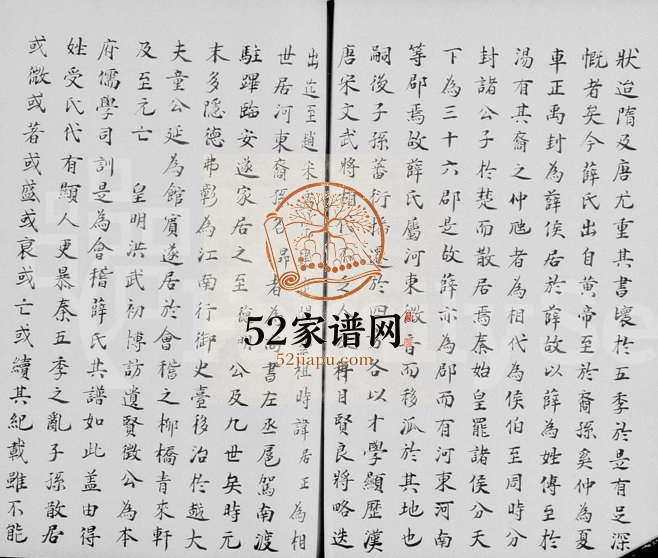 狀迨隋及唐尤重其書壞於五季於是有足深
慨者矣今薛氏出自黃帝至於裔孫奚仲為夏
車正禹封為薛侯居於薛故以薛為姓傳至於
湯有其裔之仲虺者為相代為侯伯至同時分
封諸公子於楚而散居焉秦始皇罷諸侯分天
下為三十六郡是故薛亦為郡而有河東河南
等郡焉故薛氏屬河東
而移派於其地也
嗣後子孫蕃衍
還於四
各以才學顯歷漢
唐宋文武將相代
之人
再目賢良將略迭
出迄至趙宋
祖時諱居正為相
世居河東裔孫名昂者為尚書左丞扈駕南渡
駐蹕臨安遂家居之至
公及九世矣時元
末多隱德弗彰為江南行御史臺移治於越大
夫童公延為館賓遂居於會稽之柳橋青來軒
及至元亡 皇明洪武初博訪遺賢徵公為本
府儒學司訓是為會稽薛氏其譜如此蓋由得
姓受氏代有顯人更暴秦五季之亂子孫散居
或微或著或盛或衰或亡或續其紀載雖不能
52家谱网
52jiapu.com